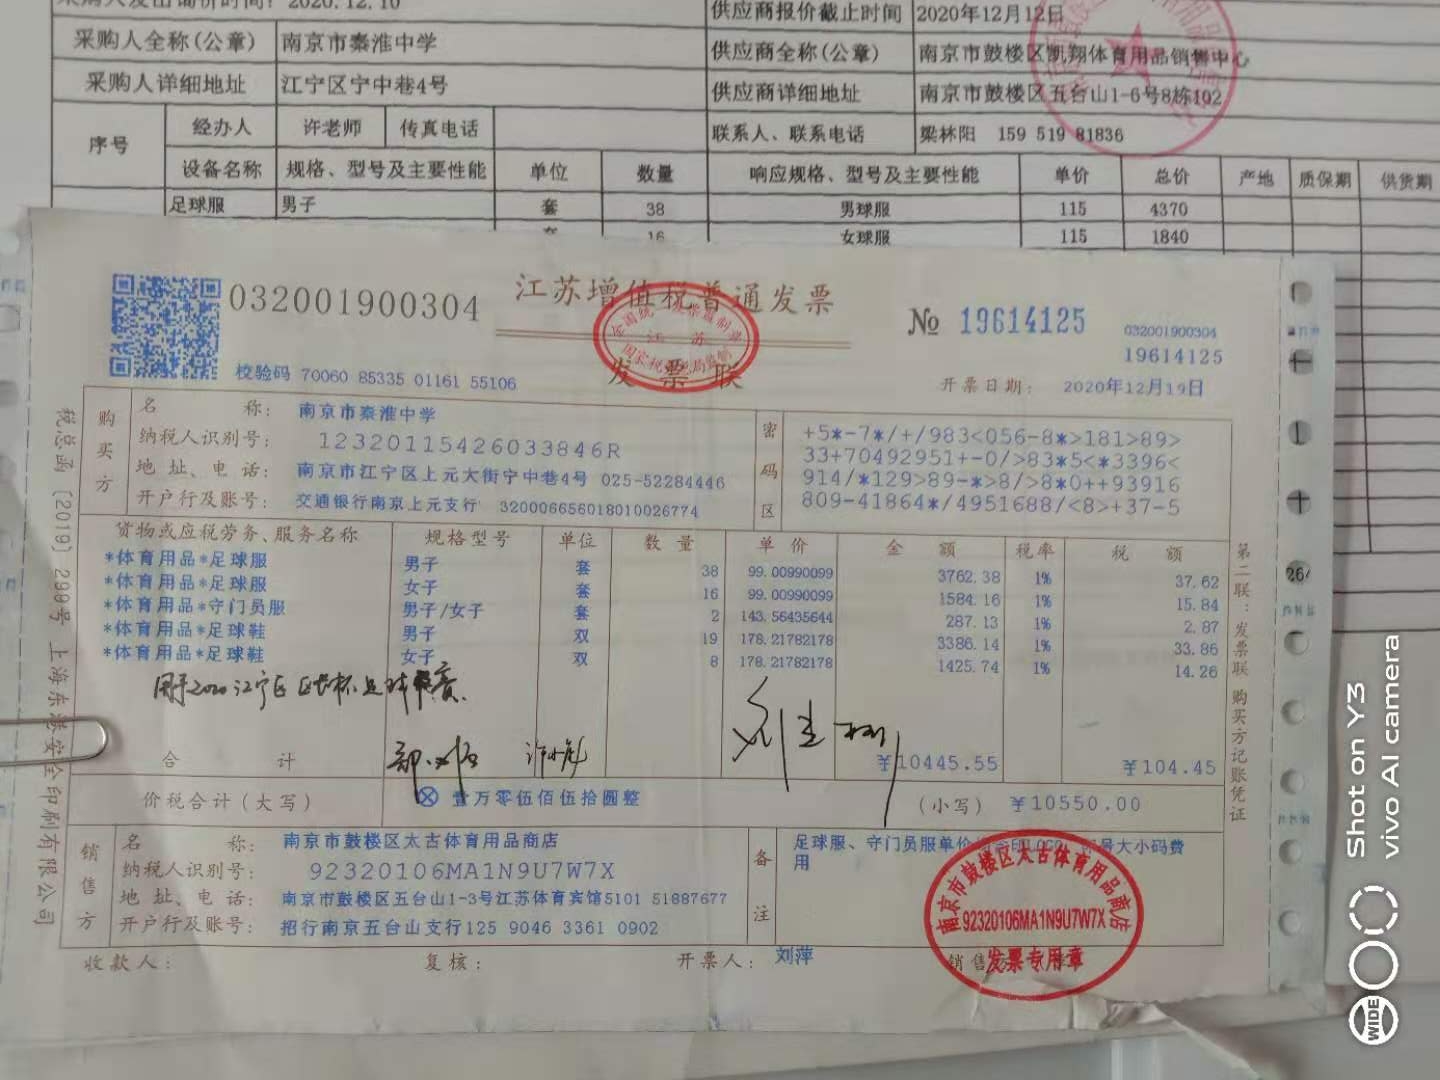 2020.12.10
供应商报价截止时间 2020年12月12日
采购人全称(公章) 南京市秦淮中学 供应商全称(公章) 南京市鼓楼区凯翔体育用品销售中心
采购人详细地址 江宁区宁中巷4号 供应商详细地址 南京市鼓楼区五台山1-6号8栋102
序号 经办人 许老师 传真电话 联系人、联系电话 梁林阳 159 519 81836
设备名称 规格、型号及主要性能 单位 数量 响应规格、型号及主要性能 单价 总价 产地 质保期 供货期
足球服 男子 套 38 男球服 115 4370
套 16 女球服 115 1840
032001900304
江苏增值税普通发票
全国统一发票监制章
江苏
国家税务总局监制
发票联
№ 19614125
032001900304
19614125
校验码 70060 85335 01161 55106
开票日期: 2020年12月19日
购买方
名 称: 南京市秦淮中学
纳税人识别号: 12320115426033846R
地 址、电 话: 南京市江宁区上元大街宁中巷4号 025-52284446
开户行及账号: 交通银行南京上元支行 320006656018010026774
密码区
+5*-7*/+/983<056-8*>181>89>
33+70492951+-0/>83*5<*3396<
914/*129>89-*>8/>8*0++93916
809-41864*/4951688/<8>+37-5
货物或应税劳务、服务名称 规格型号 单位 数 量 单 价 金 额 税率 税 额
*体育用品*足球服 男子 套 38 99.00990099 3762.38 1% 37.62
*体育用品*足球服 女子 套 16 99.00990099 1584.16 1% 15.84
*体育用品*守门员服 男子/女子 套 2 143.56435644 287.13 1% 2.87
*体育用品*足球鞋 男子 双 19 178.21782178 3386.14 1% 33.86
*体育用品*足球鞋 女子 双 8 178.21782178 1425.74 1% 14.26
用于2020江宁区区长杯足球比赛.
合 计 ¥10445.55 ¥104.45
价税合计(大写) 壹万零伍佰伍拾圆整 (小写) ¥10550.00
销售方
名 称: 南京市鼓楼区太古体育用品商店
纳税人识别号: 92320106MA1N9U7W7X
地 址、电 话: 南京市鼓楼区五台山1-3号江苏体育宾馆5101 51887677
开户行及账号: 招行南京五台山支行125 9046 3361 0902
备注
足球服、守门员服单价 号大小码费
用
南京市鼓楼区太古体育用品商店
92320106MA1N9U7W7X
发票专用章
收款人: 复核: 开票人: 刘萍 销售
税总函〔2019〕299号 上海东港安全印刷有限公司
第二联:发票联 购买方记账凭证
264
Shot on Y3
vivo AI camera
WIDE